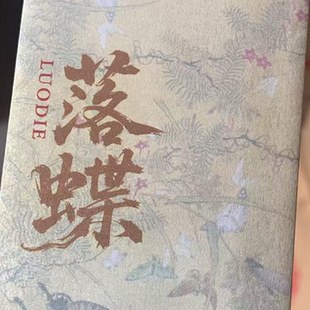 落蝶
LUODIE